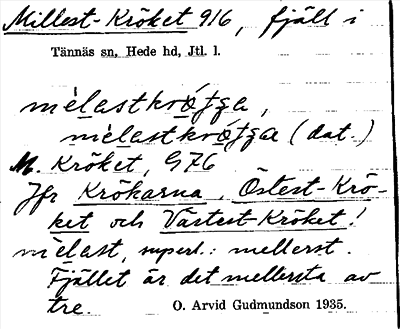 Millest-Kröket 916, fjäll i
Tännäs sn, Hede hd, Jtl. l.
mèlastkrǫ́tʒa,
mèlastkrǫ́tʒa (dat.)
M. Kröket, G76
Jfr Krökarna, Östest-Krö-
ket och Västest-Kröket!
mèlast, superl.: mellerst.
Fjället är det mellersta av
tre.
O. Arvid Gudmundson 1935.